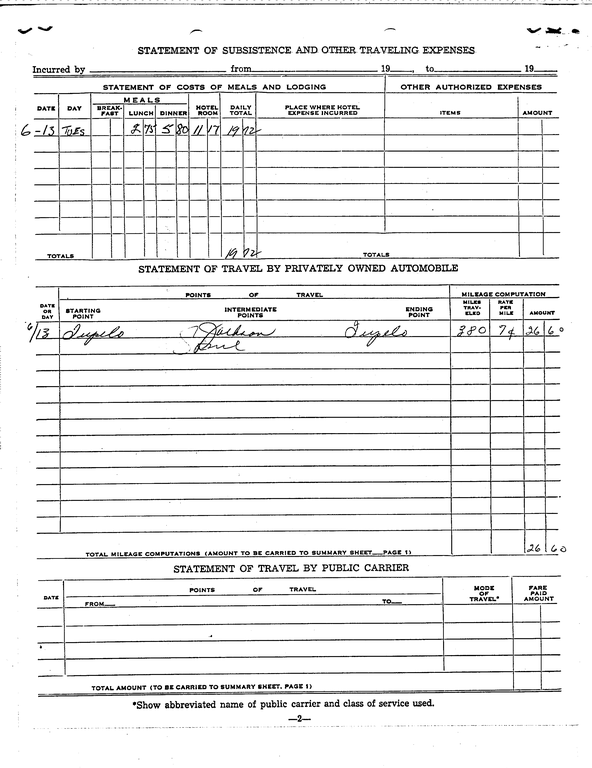 STATEMENT OF SUBSISTENCE AND OTHER TRAVELING EXPENSES
Incurred by from 19 , to 19
STATEMENT OF COSTS OF MEALS AND LODGING OTHER AUTHORIZED EXPENSES
MEALS
DATE DAY BREAK-FAST LUNCH DINNER HOTEL ROOM DAILY TOTAL PLACE WHERE HOTEL EXPENSE INCURRED ITEMS AMOUNT
6-13 TUES 2 75 5 80 11 17 19 72
19 72
TOTALS TOTALS
STATEMENT OF TRAVEL BY PRIVATELY OWNED AUTOMOBILE
POINTS OF TRAVEL MILEAGE COMPUTATION
DATE OR DAY STARTING POINT INTERMEDIATE POINTS ENDING POINT MILES TRAV-ELED RATE PER MILE AMOUNT
6/13 Tupelo Jackson Tupelo 380 7¢ 26 60
26 60
TOTAL MILEAGE COMPUTATIONS (AMOUNT TO BE CARRIED TO SUMMARY SHEET PAGE 1)
STATEMENT OF TRAVEL BY PUBLIC CARRIER
DATE POINTS OF TRAVEL MODE OF TRAVEL* FARE PAID AMOUNT
FROM TO
TOTAL AMOUNT (TO BE CARRIED TO SUMMARY SHEET, PAGE 1)
*Show abbreviated name of public carrier and class of service used.
—2—